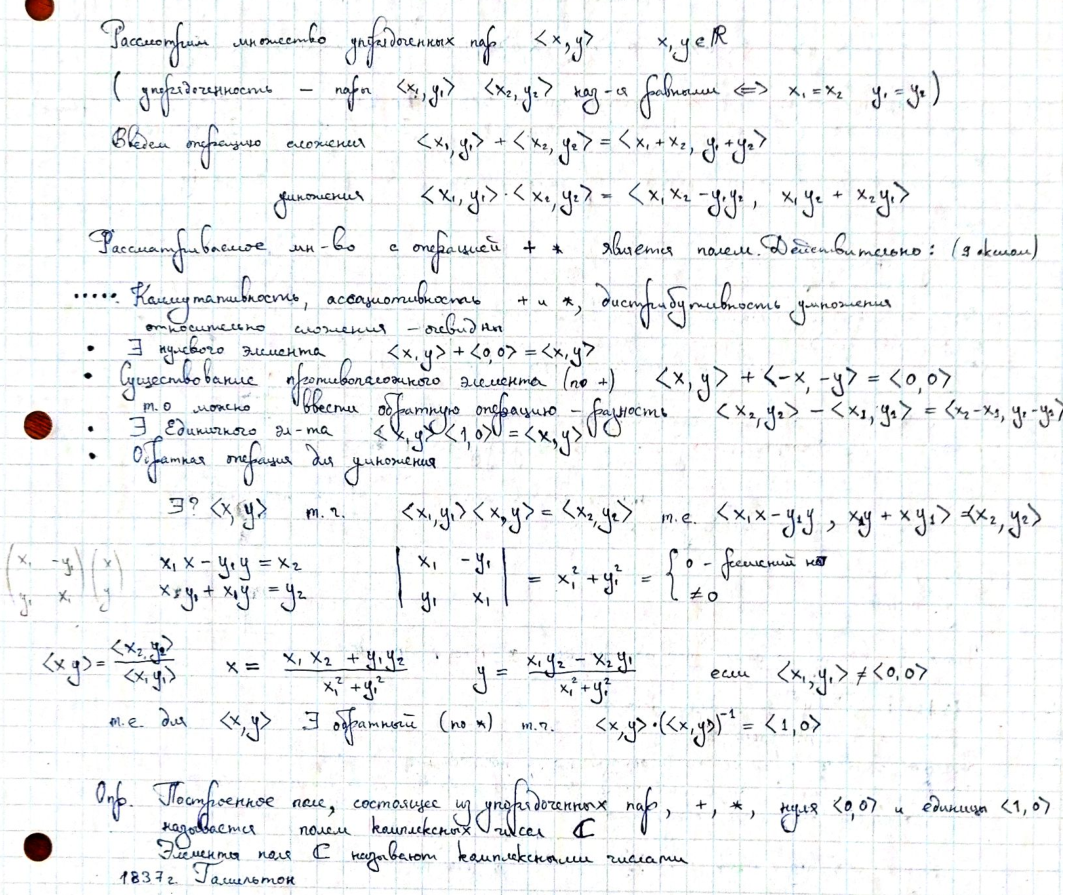 Рассмотрим множество упорядоченных пар <x,y> x,y∈ℝ
( упорядоченность – пары <x₁,y₁> <x₂,y₂> наз-ся равными ⇔ x₁=x₂ y₁=y₂)
Введем операцию сложения <x₁,y₁> + <x₂,y₂> = <x₁+x₂, y₁+y₂>
умножения <x₁,y₁>·<x₂,y₂> = <x₁x₂ - y₁y₂, x₁y₂ + x₂y₁>
Рассматриваемое мн-во с операцией + * является полем. Действительно: (9 аксиом)
..... Коммутативность, ассоциативность + и *, дистрибутивность умножения
относительно сложения – очевидны
• ∃ нулевого элемента <x,y> + <0,0> = <x,y>
• Существование противоположного элемента (по +) <x,y> + <-x,-y> = <0,0>
т.о можно ввести обратную операцию – разность <x₂,y₂> - <x₁,y₂> = <x₂-x₁, y₁-y₂>
• ∃ Единичного эл-та <x,y> <1,0> = <x,y>
• Обратная операция для умножения
∃? <x,y> т.ч. <x₁,y₁> <x,y> = <x₂,y₂> т.е. <x₁x - y₁y, x₁y + xy₁> = <x₂,y₂>
(x₁ -y₁) (x) x₁x - y₁y = x₂ | x₁ -y₁ | = x₁² + y₁² = { 0 - решений нет
(y₁ x₁) (y) xy₁ + x₁y = y₂ | y₁ x₁ | ≠0
<x y> = <x₂ y₂> / <x₁ y₁> x = (x₁x₂ + y₁y₂) / (x₁² + y₁²) y = (x₁y₂ - x₂y₁) / (x₁² + y₁²) если <x₁,y₁> ≠ <0,0>
т.е. для <x,y> ∃ обратный (по *) т.ч. <x,y>·(<x,y>)⁻¹ = <1,0>
Опр. Построенное поле, состоящее из упорядоченных пар, +, *, нуля <0,0> и единицы <1,0>
называется полем комплексных чисел ℂ
Элементы поля ℂ называют комплексными числами
1837г. Гамильтон